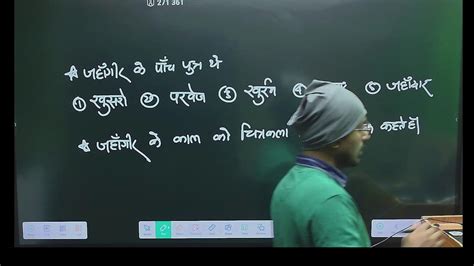 271 361
* जहाँगीर के पाँच पुत्र थे
① खुसरो ② परवेज ③ खुर्रम ④ ⑤ जहाँदार
* जहाँगीर के काल को चित्रकला कहते हैं।